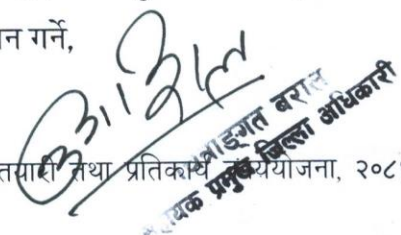 न गर्ने,
बराल
प्रमुख जिल्ला अधिकारी
तयारी तथा प्रतिकार्य कार्ययोजना, २०८